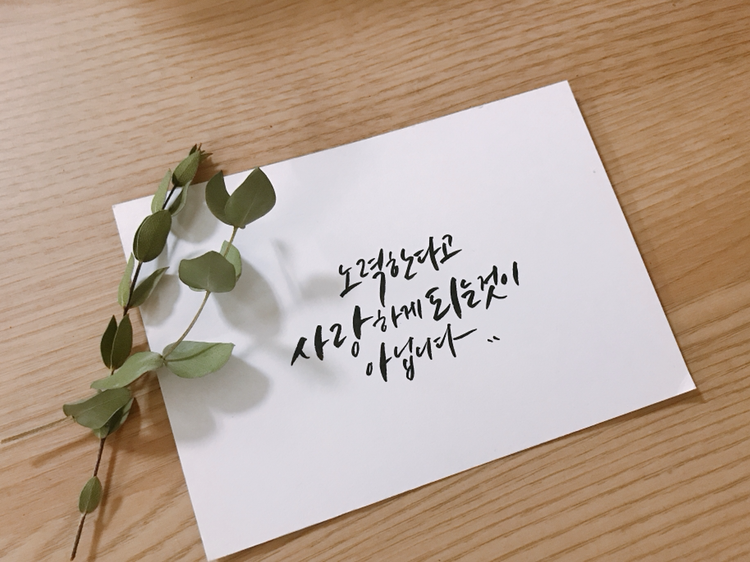 노력한다고
사랑하게 되는것이
아닙니다..